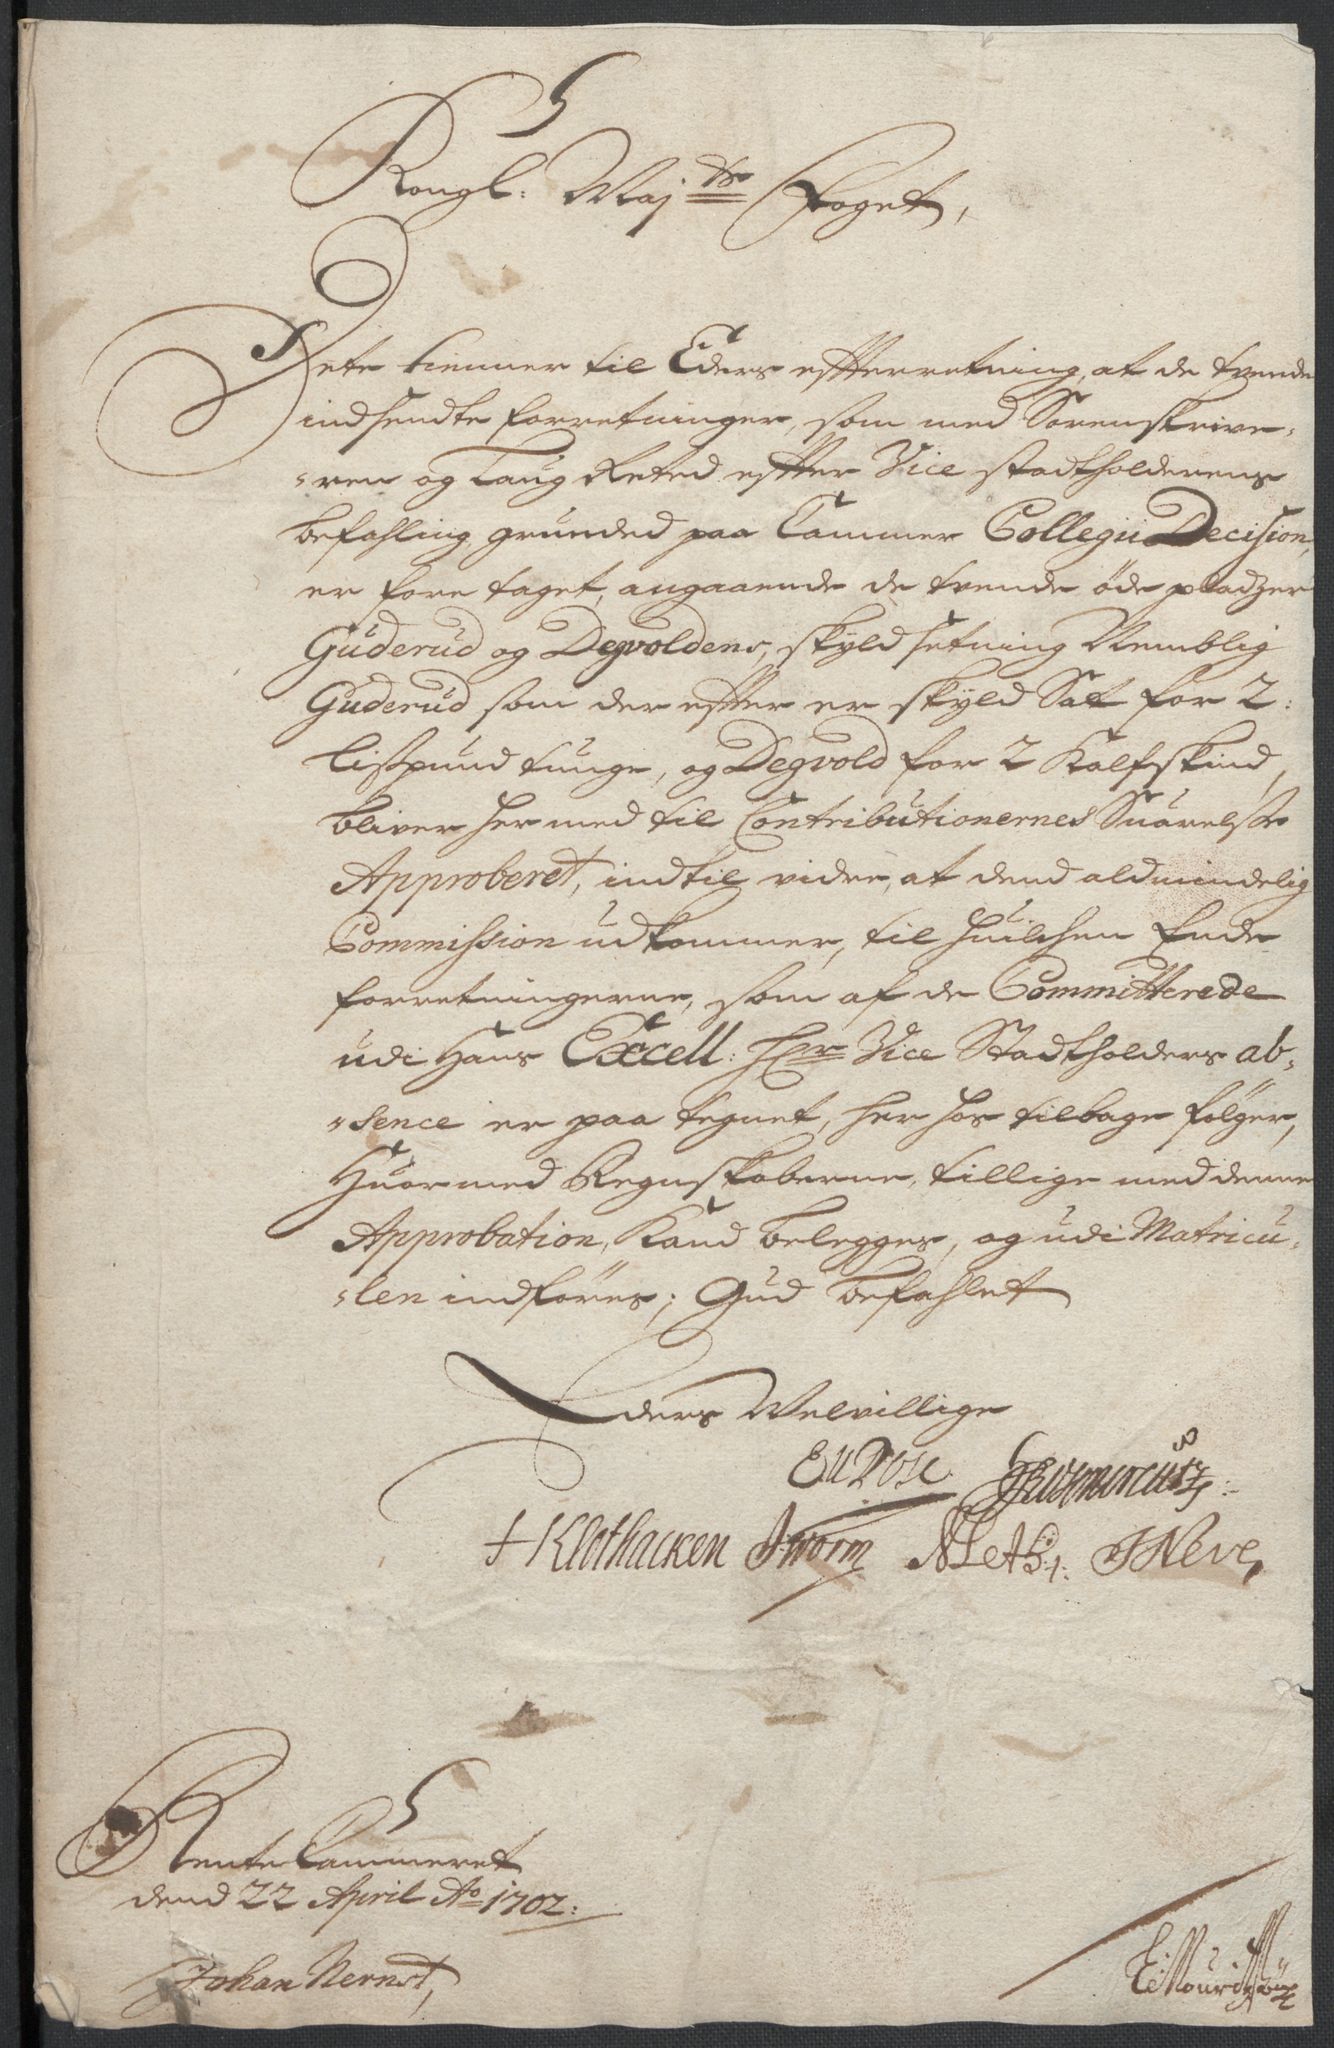 Kongl: Maj ts Foget,
Dete tienner til Eders effterretning, at de tvende
indsendte forretninger, som med Sorenskrive-
-ren og Laug Retted effter Vice Stadtholderens
befahling, grunded paa Cammer Collegii Decision,
er fore taget, angaaende de tvende öde pladzer
Guderud og Degvoldens, skyld setning Nemblig
Guderud som der effter er skyld Sat for 2:
Lispund tunge, og Degvold for 2 Kalfskind,
bliver her med til Contributionernes Suarelse
Approberet, indtil vidre, at dend aldmindelig
Commission udkommer, til huilchen Ende
forretningerne, som af de Committerede
udi Hans Excell: Hr Vice Stadtholders ab-
-sence er paa tegnet, her hos tilbage fölger,
Huormed Regnskaberne, tillige med denne
Approbation, Kand belegges, og udi Matricu-
-len indföres; Gud befahlet
Eders Velvillige
Klothacken JWorm
JNeve,
Rente Cammeret
dend 22 April Ao 1702:
Johan Nernst,